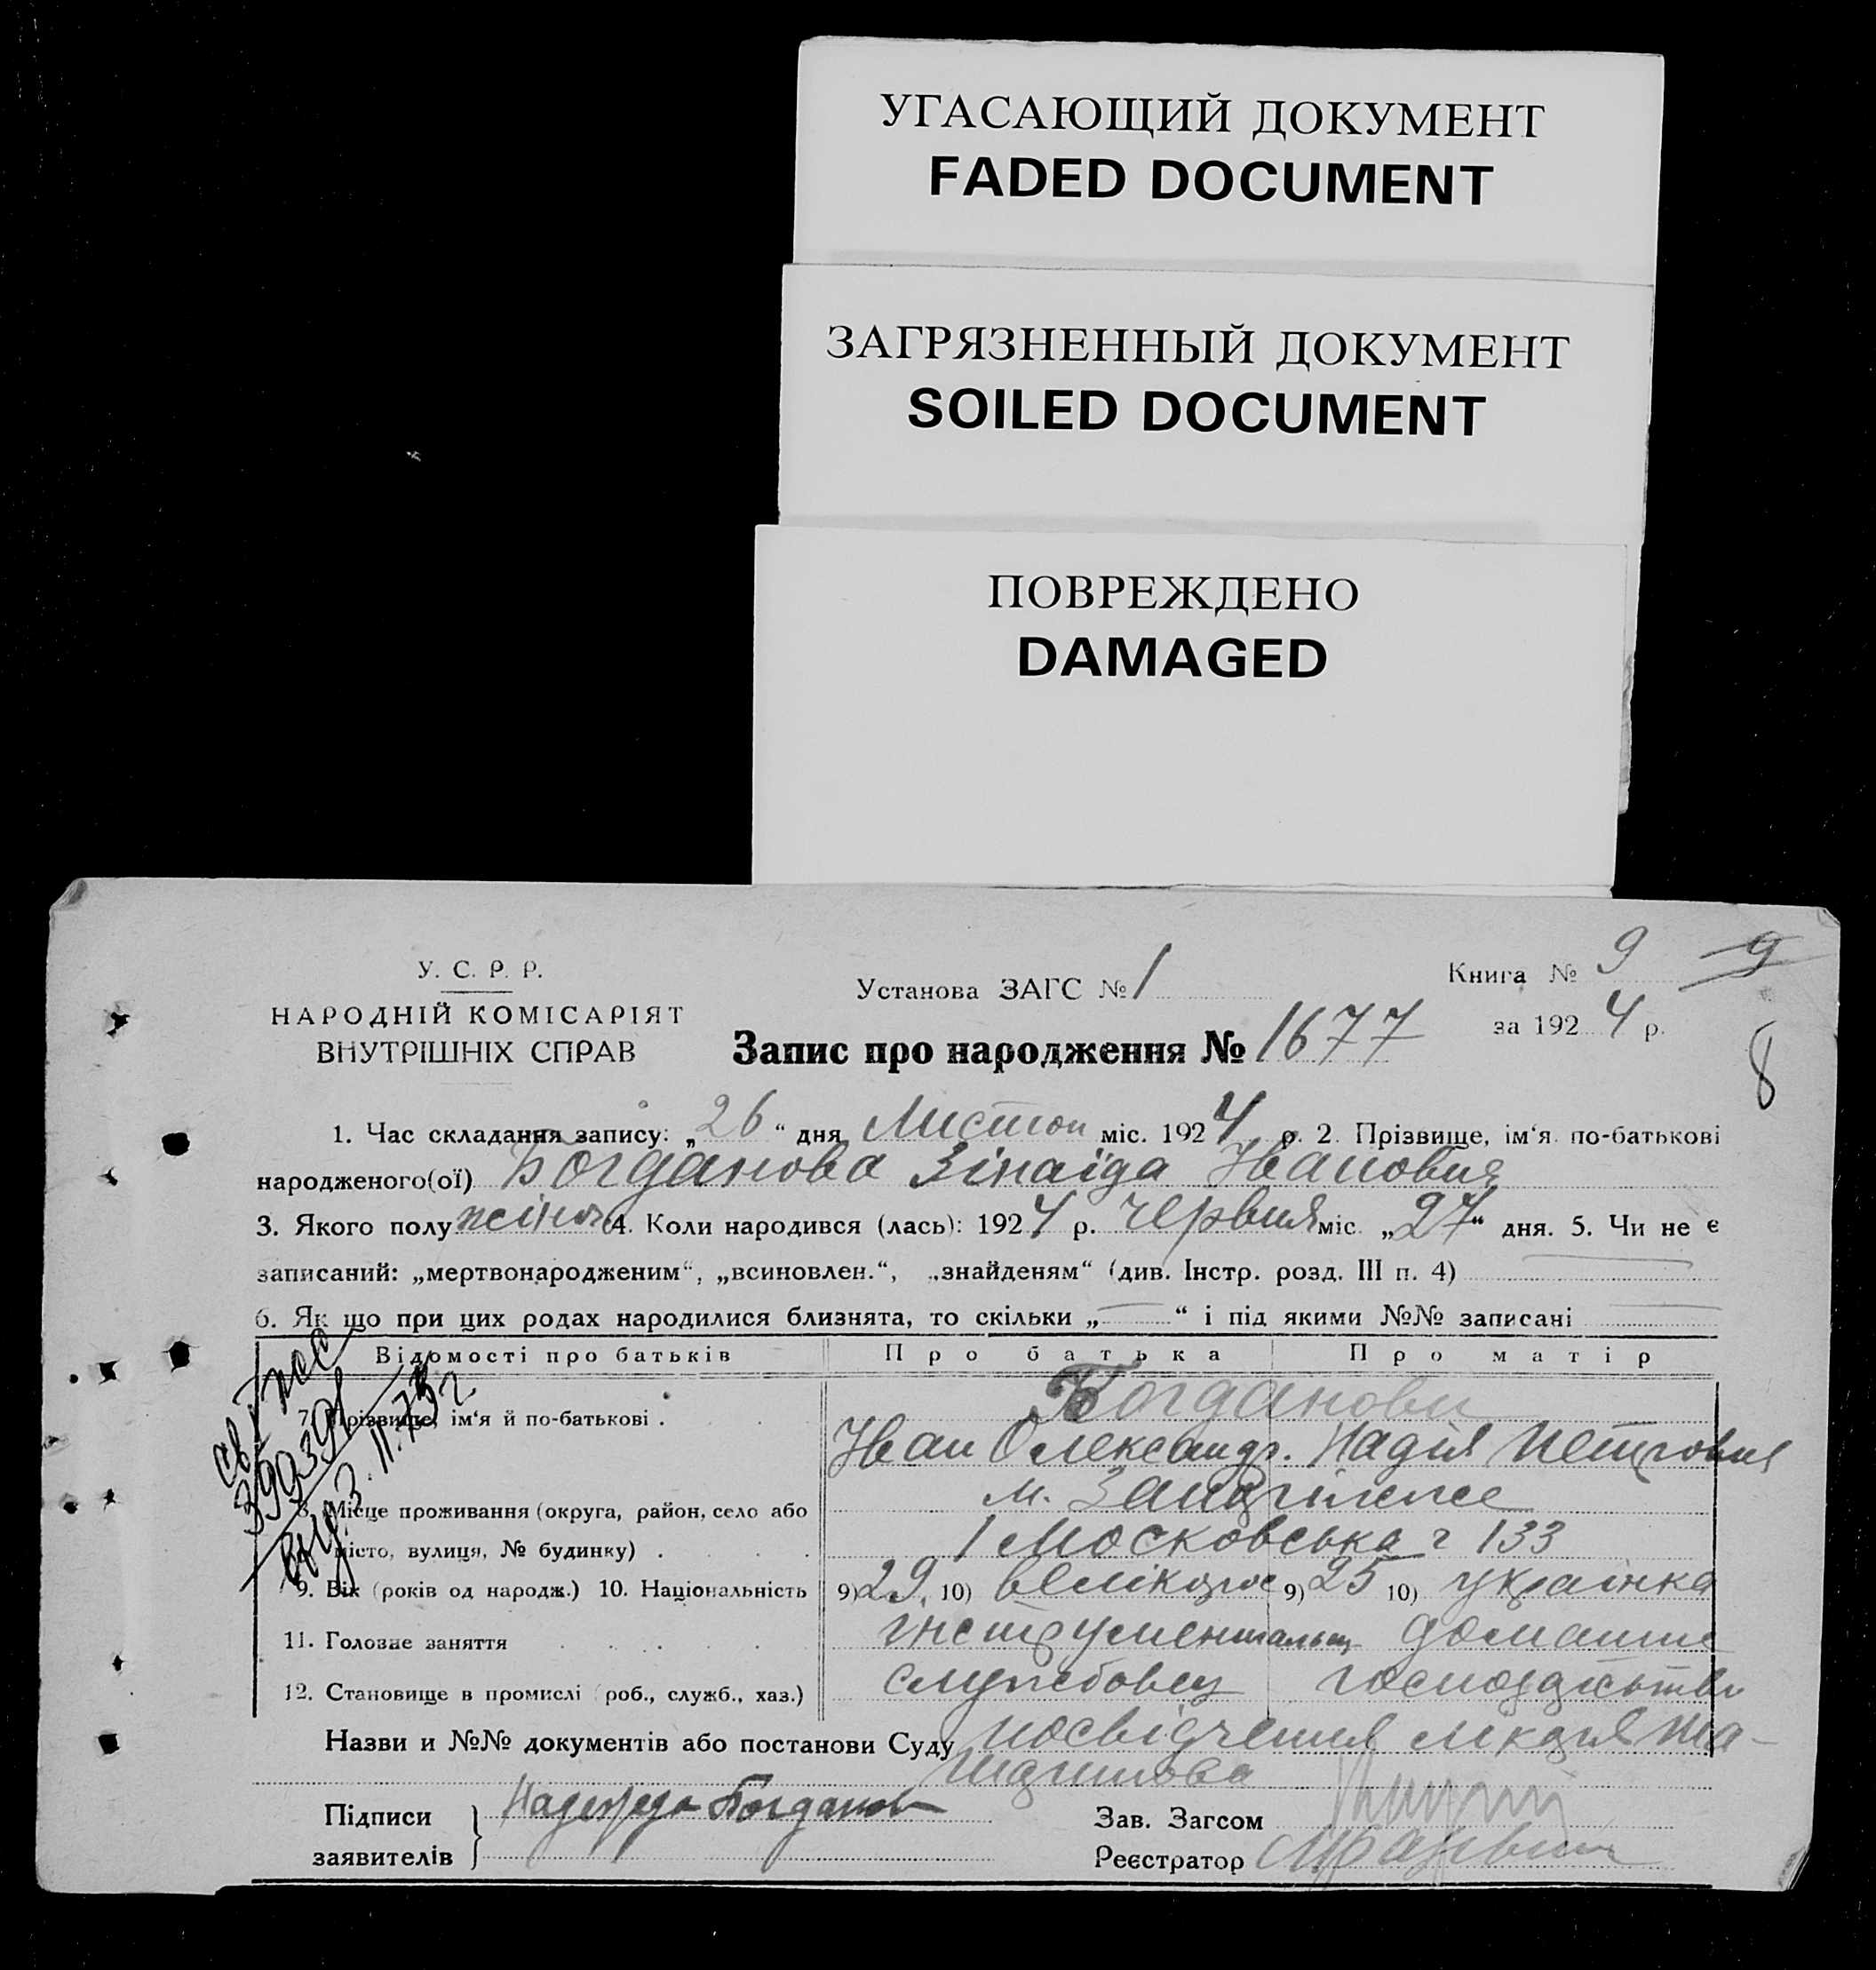 УГАСАЮЩИЙ ДОКУМЕНТ
FADED DOCUMENT
ЗАГРЯЗНЕННЫЙ ДОКУМЕНТ
SOILED DOCUMENT
ПОВРЕЖДЕНО
DAMAGED
У. С. Р. Р.
НАРОДНІЙ КОМІСАРІЯТ
ВНУТРІШНІХ СПРАВ
Установа ЗАГС № 1
Книга № 9 9
за 1924 р.
8
Запис про народження № 1677
1. Час складання запису: „26“ дня Листоп міс. 1924 р. 2. Прізвище, ім‘я по-батькові
народженого(ої) Богданова Зінаїда Івановна
3. Якого полу жіноч 4. Коли народився (лась): 1924 р. червня міс. „27“ дня. 5. Чи не є
записаний: „мертвонародженим“, „всиновлен.“, „знайденям“ (див. Інстр. розд. III п. 4)
6. Як що при цих родах народилися близнята, то скільки „—“ і під якими №№ записані
Відомості про батьків Про батька Про матір
7. Прізвище, ім‘я й по-батькові . Богданови
Іван Олександр. Надія Петровна
8. Місце проживання (округа, район, село або
місто, вулиця, № будинку) . 1 Московська 133
9. Вік (років од народж.) 10. Національність 9) 29. 10) велікорос 9) 25 10) українка
11. Головне заняття інструментальщ домашнє
12. Становище в промислі (роб., служб., хаз.) службовец господарство
Назви и №№ документів або постанови Суду посвідчення лікаря
Підписи
заявителів
Надежда Богданов
Зав. Загсом
Реєстратор
399391